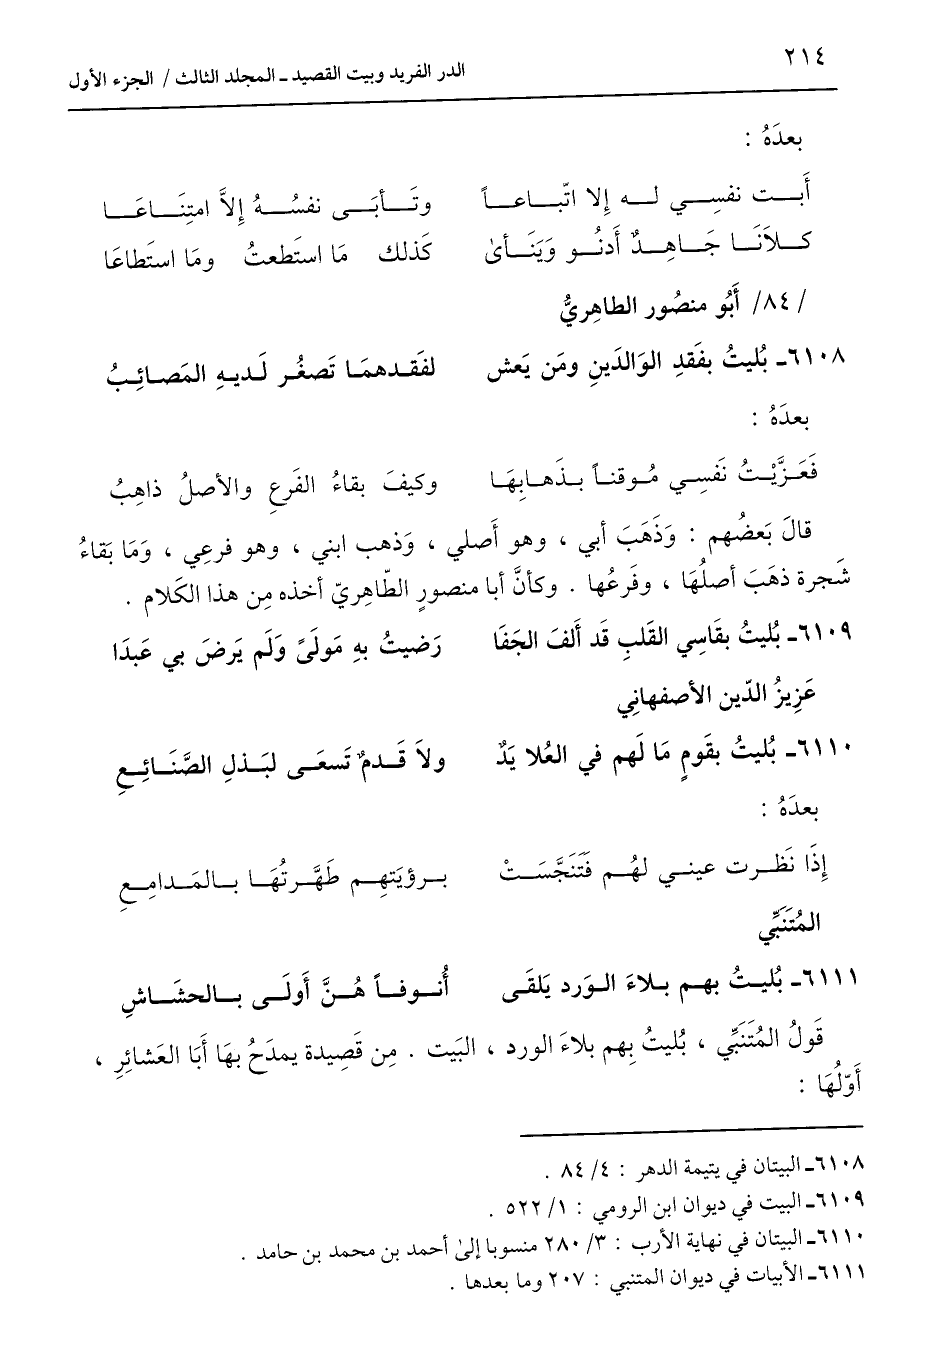 ٢١٤
الدر الفريد وبيت القصيد ـ المجلد الثالث / الجزء الأول
بعدَهُ :
أَبـت نفسِـي لـه إلا اتّبـاعـاً وتَـأبَـى نفسُـهُ إلاَّ امتِنَـاعَـا
كـلاَنَـا جَـاهِـدٌ أَدنُـو وَيَنـأىٰ كَذلك مَا استَطعتُ ومَا استَطاعَا
/ ٨٤/ أَبُو منصُور الطاهِريُّ
٦١٠٨ـ بُليتُ بفَقدِ الوَالدَينِ ومَن يَعش لفَقـدهمَـا تَصغُـر لَـديـهِ المَصـائِـبُ
بعدَهُ :
فَعَـزَّيْـتُ نَفسِـي مُـوقنـاً بـذَهـابِهَـا وكيفَ بقاءُ الفَرعِ والأصلُ ذاهِبُ
قالَ بَعضُهم : وَذَهَبَ أبي ، وهو أَصلي ، وَذهب ابني ، وهو فرعِي ، وَمَا بَقاءُ
شَجرة ذهَبَ أصلُهَا ، وفَرعُها . وكأنَّ أبا منصورٍ الطّاهِريّ أخذه مِن هذا الكَلام .
٦١٠٩ـ بُليتُ بقَاسِي القَلبِ قَد ألفَ الجَفَا رَضيتُ بهِ مَولىً وَلَم يَرضَ بي عَبدَا
عَزِيزُ الدّين الأصفهانِي
٦١١٠ـ بُليتُ بقَومٍ مَا لَهم في العُلا يَدٌ ولاَ قَـدمٌ تَسعَـى لبَـذلِ الصَّنَـائِـعِ
بعدَهُ :
إذَا نَظـرت عينـي لهُـم فَتَنَجَّسَـتْ بـرؤيَتِهـم طَهَّـرتُهَـا بـالمَـدامِـعِ
المُتَنَبِّي
٦١١١ـ بُليـتُ بهـم بـلاءَ الـوَرد يَلقَـى أُنـوفـاً هُـنَّ أَولَـى بـالحشَـاشِ
قَولُ المُتَنَبِّي ، بُليتُ بِهم بلاءَ الورد ، البَيت . مِن قَصِيدة يمدَحُ بهَا أَبَا العَشائِرِ ،
أَوّلُهَا :
٦١٠٨ـ البيتان في يتيمة الدهر : ٤/ ٨٤ .
٦١٠٩ـ البيت في ديوان ابن الرومي : ١/ ٥٢٢ .
٦١١٠ـ البيتان في نهاية الأرب : ٣/ ٢٨٠ منسوبا إلىٰ أحمد بن محمد بن حامد .
٦١١١ـ الأبيات في ديوان المتنبي : ٢٠٧ وما بعدها .